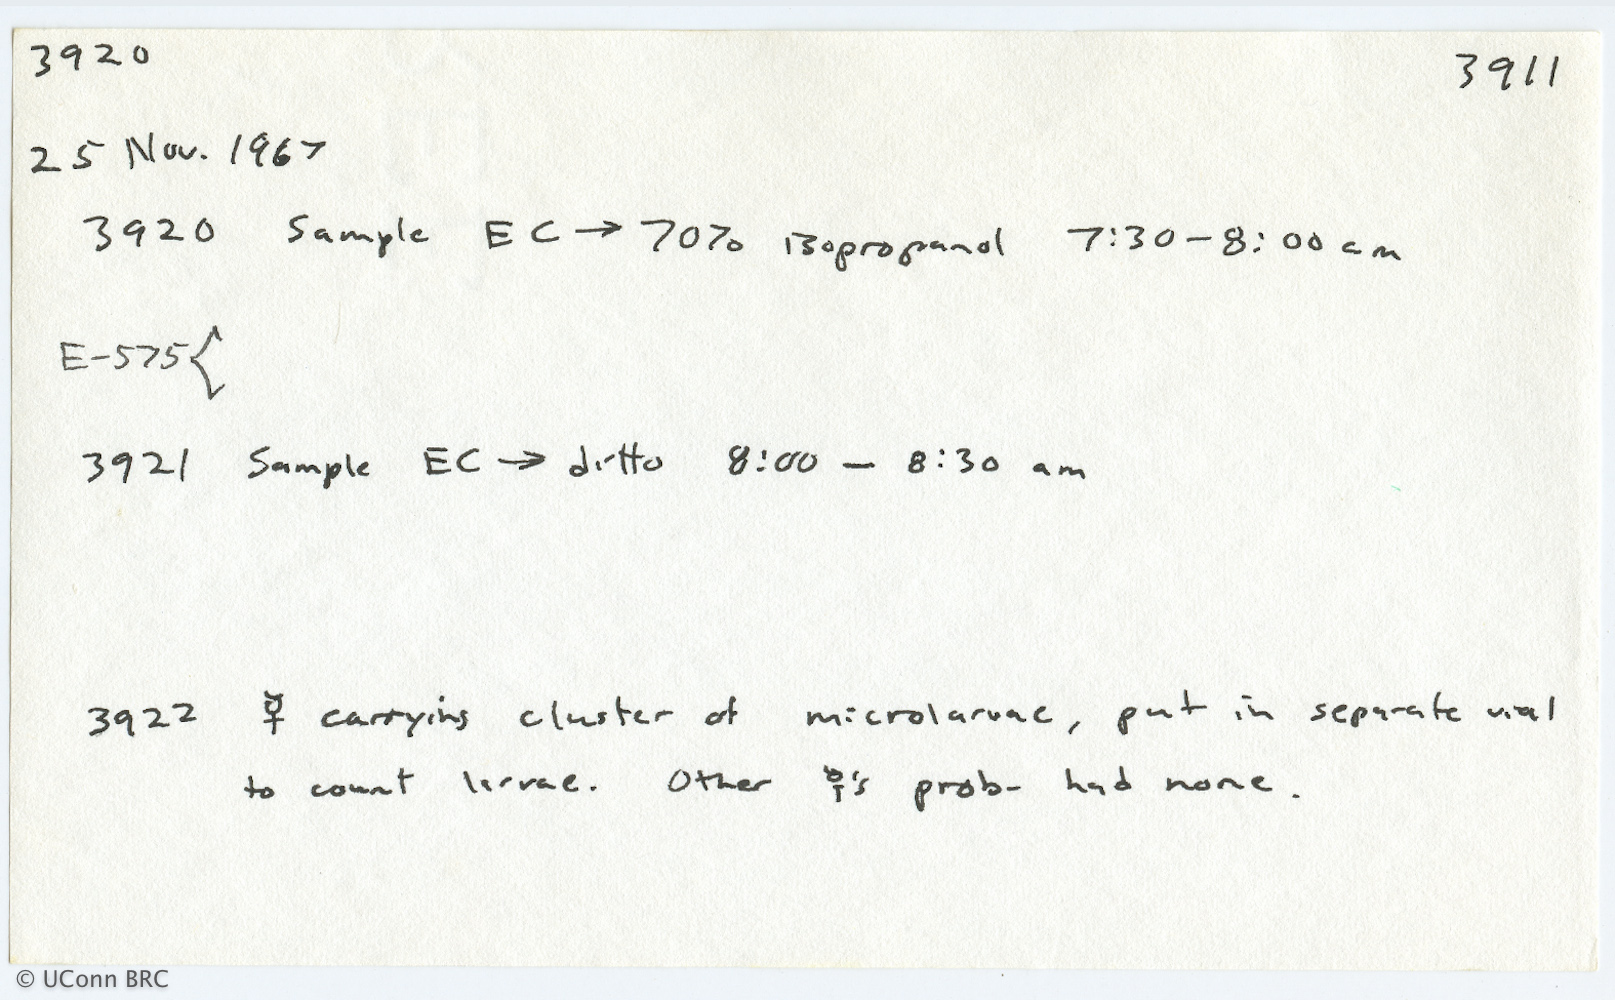 3920 3911
25 Nov. 1967
3920 Sample EC → 70% isopropanol 7:30 - 8:00 am
E-575 {
3921 Sample EC → ditto 8:00 - 8:30 am
3922 ☿ carrying cluster of microlarvae, put in separate vial
to count larvae. Other ☿'s prob- had none.
© UConn BRC